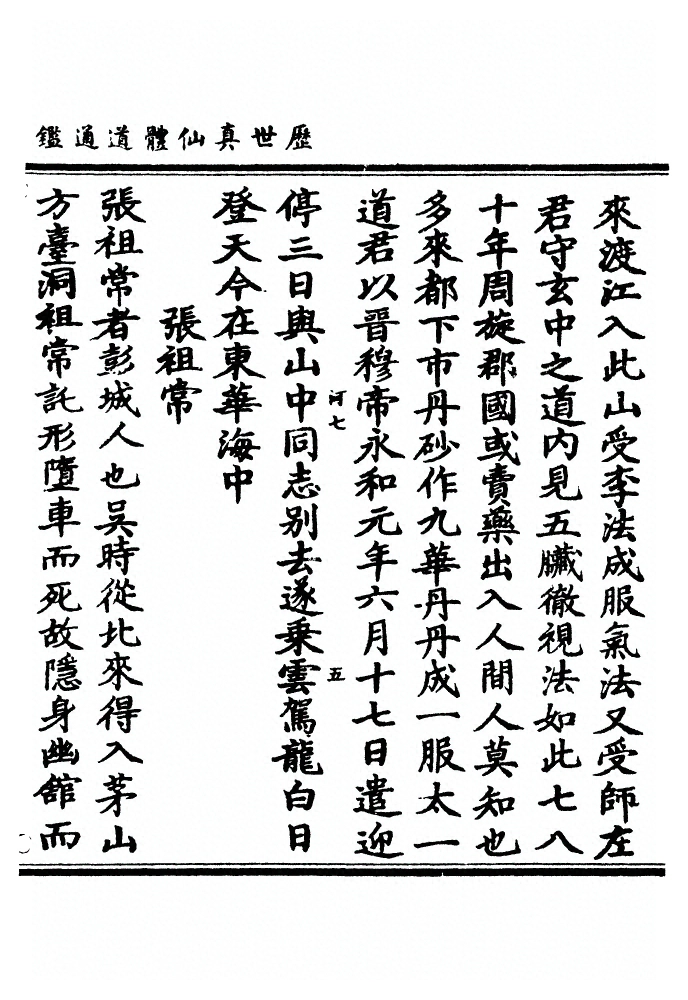 歷世真仙體道通鑑
來渡江入此山受李法成服氣法又受師左
君守玄中之道內見五臟徹視法如此七八
十年周旋郡國或賣藥出入人間人莫知也
多來都下市丹砂作九華丹丹成一服太一
道君以晉穆帝永和元年六月十七日遣迎
河七
五
停三日與山中同志別去遂乘雲駕龍白日
登天今在東華海中
張祖常
張祖常者彭城人也吳時從北來得入茅山
方臺洞祖常託形墮車而死故隱身幽舘而